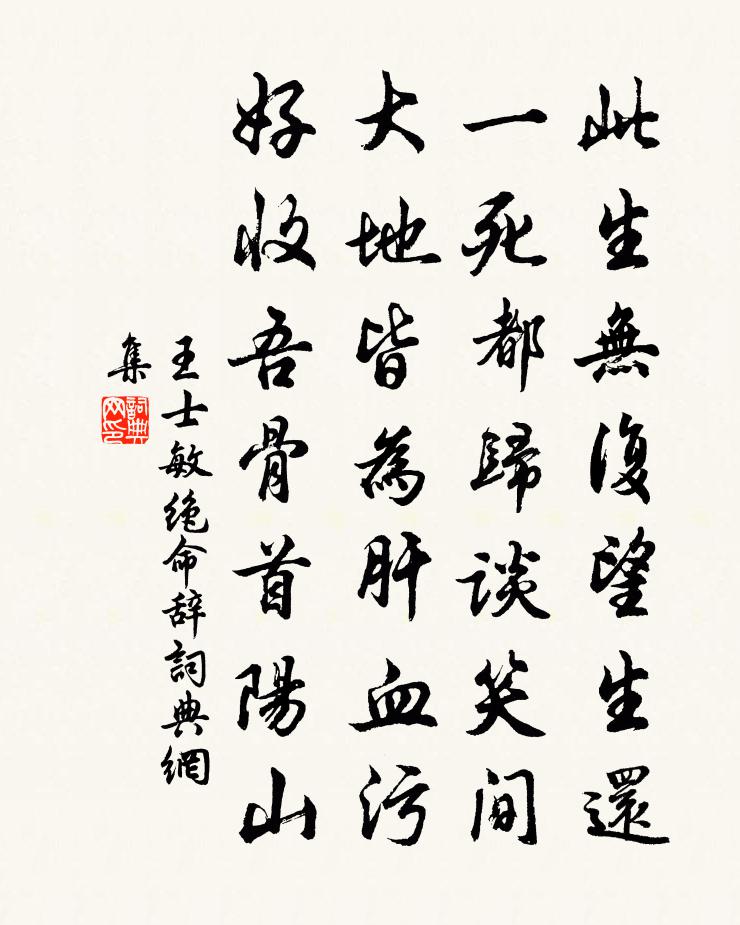 此生無復望生還
一死都歸談笑間
大地皆為肝血污
好收吾骨首陽山
王士敏絶命辞詞典網
集
詞典
网印